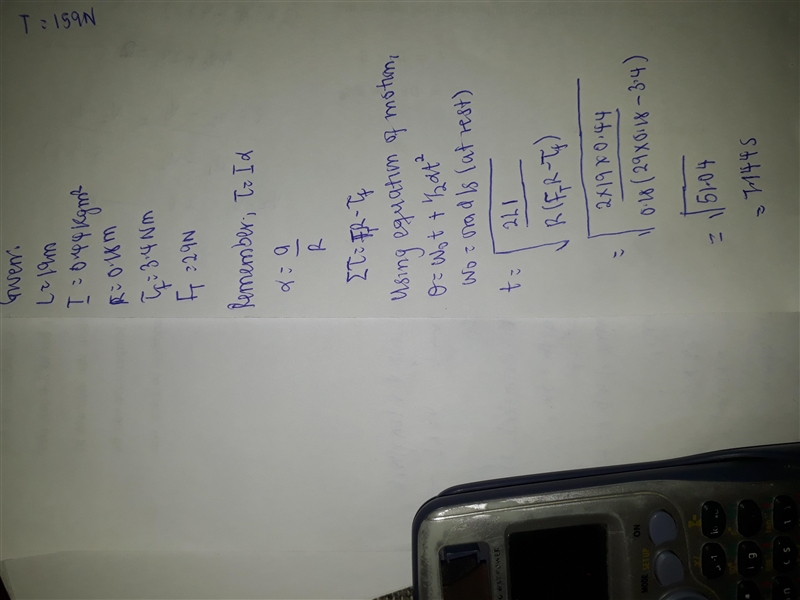 T = 159N
Given:
L = 19m
I = 0.44 kgm²
R = 0.18m
τf = 3.4 Nm
FT = 29N
Remember, τ = Iα
α = a/R
Στ = FR - τf
Using equation of motion,
θ = ω₀t + 1/2αt²
ω₀ = 0rad/s (at rest)
t = √(2LI / R(FTR - τf))
= √(2×19×0.44 / 0.18(29×0.18 - 3.4))
= √51.04
= 7.144s
ON
MODE SETUP